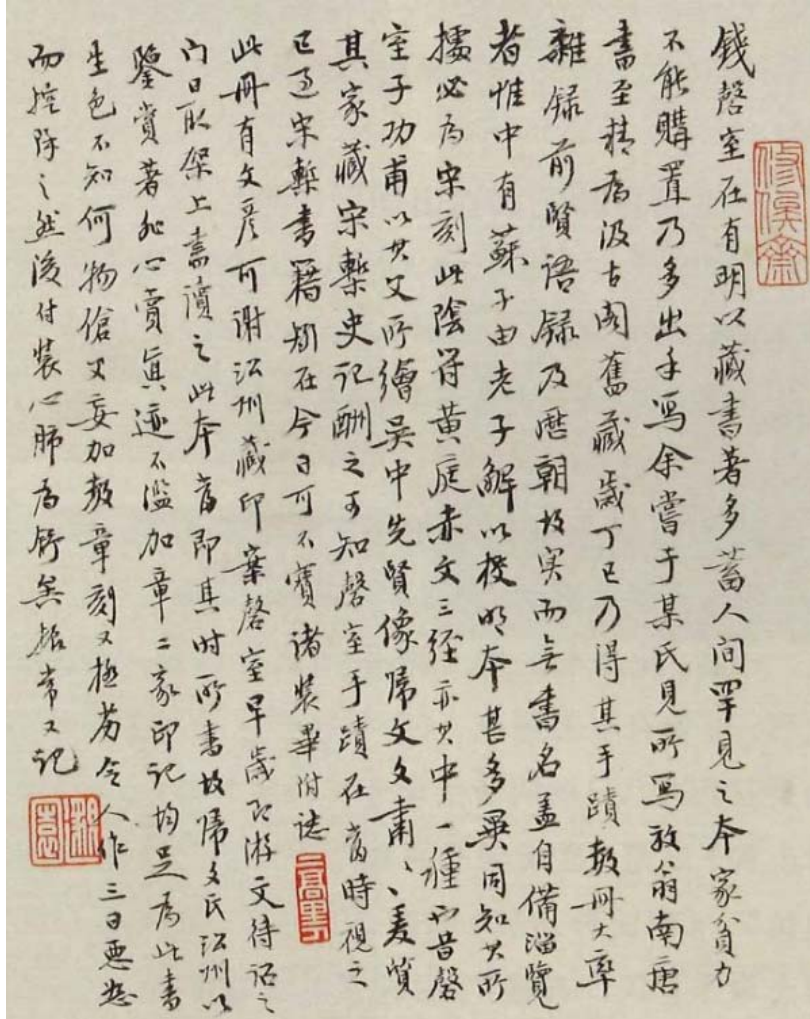 錢磬室在有明以藏書著多蓄人間罕見之本家貧力
不能購置乃多出手寫余嘗于某氏見所寫放翁南唐
書至精為汲古閣舊藏歲丁巳乃得其手蹟數冊大率
雜錄前賢語錄及歷朝故实而無書名蓋自備溜覽
者惟中有蘇子由老子解以校明本甚多異同知其所
據必為宋刻此陰符黃庭赤文三經亦其中一種也昔磬
室子功甫以其父所繪吳中先賢像歸文文肅、、戔質
其家藏宋槧史記酬之可知磬室手蹟在當時視之
已過宋槧書籍矧在今日可不寶諸裝畢附誌
此冊有文彥可謝江州藏印案磬室早歲即游文待詔之
門日取架上書讀之此本當即其時所書故歸文氏江州以
鑒賞著 心賞真迹不濫加章二家印記均足為此書
生色不知何物傖父妄加數章刻又極劣令人作三日惡
而控除之然後付裝心肺為舒矣振常又記